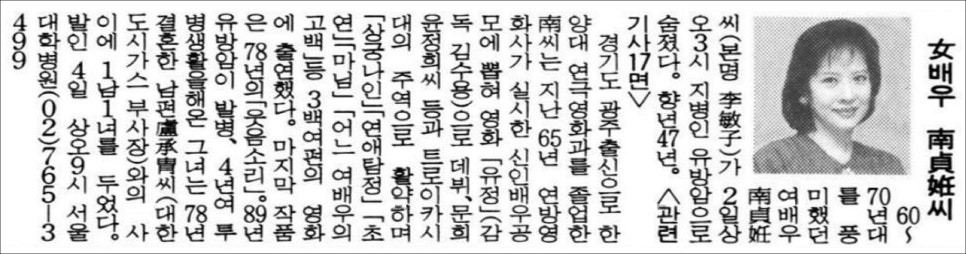 女배우 南貞姙씨
60~
70년대
를 풍
미했던
여배우
南貞姙
씨(본명 李敏子)가 2일상
오3시 지병인 유방암으로
숨졌다. 향년47년. <관련
기사17면>
경기도 광주출신으로 한
양대 연극영화과를 졸업한
南씨는 지난 65년 연방영
화사가 실시한 신인배우공
모에 뽑혀 영화 「유정」(감
독 김수용)으로 데뷔, 문희
윤정희씨 등과 트로이카시
대의 주역으로 활약하며
「상궁나인」「연애탐정」「초
연」「마님」「어느 여배우의
고백」등 3백여편의 영화
에 출연했다. 마지막 작품
은 78년의「웃음소리」. 89년
유방암이 발병, 4년여 투
병생활을해온 그녀는 78년
결혼한 남편盧承胄씨(대한
도시가스 부사장)와의 사
이에 1남1녀를 두었다.
발인 4일 상오9시 서울
대학병원(02)765―3
499